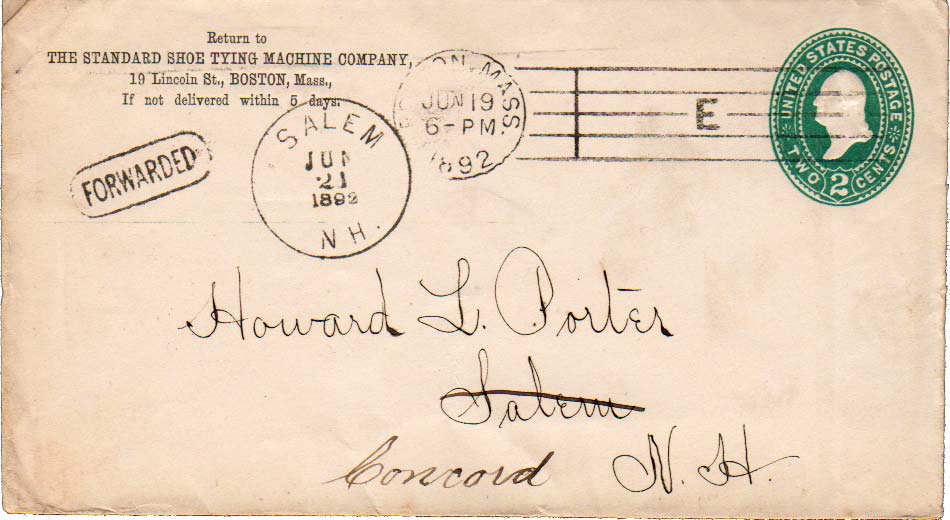 Return to
THE STANDARD SHOE TYING MACHINE COMPANY,
19 Lincoln St., BOSTON, Mass.,
If not delivered within 5 days.
FORWARDED
SALEM
JUN
21
1892
N H.
MASS.
JUN 19
6-PM
1892
E
UNITED STATES POSTAGE
TWO 2 CENTS
Howard L. Porter
Salem
Concord N. H.